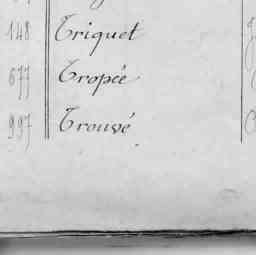 148 Triquet
677 Tropée
997 Trouvé